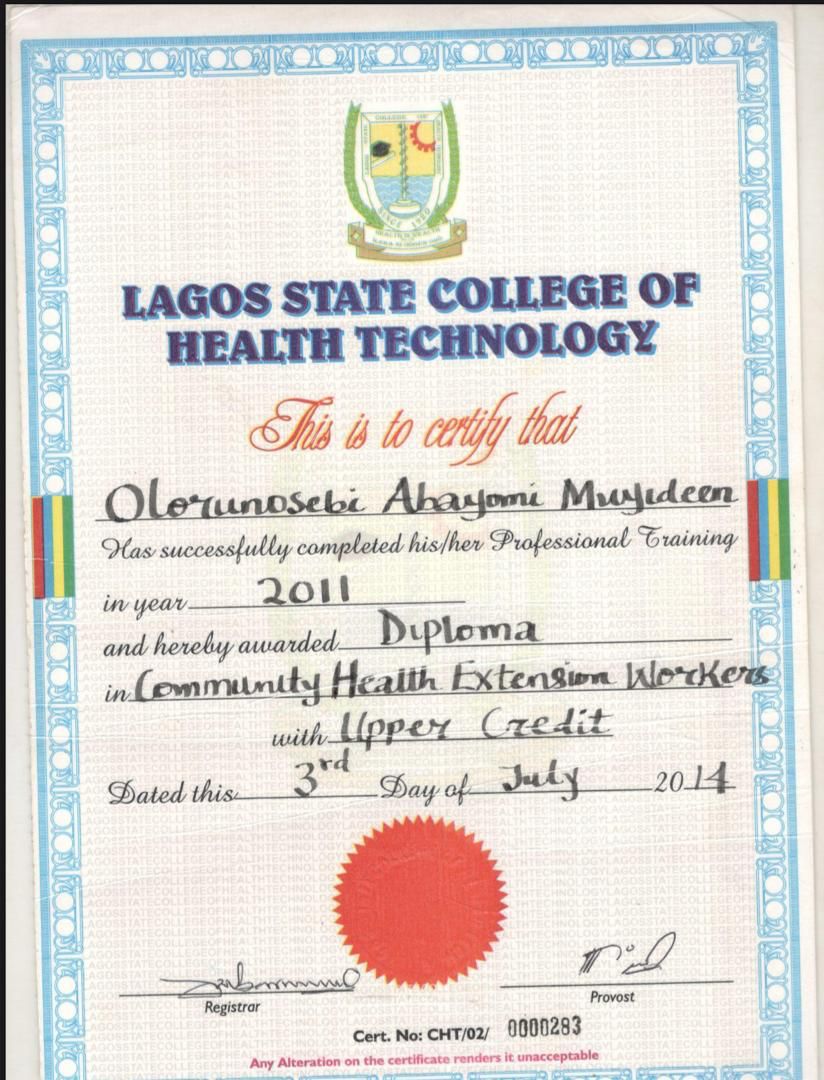 COLLEGE OF
SINCE 1920
HEALTH IS WEALTH
LAGOS STATE COLLEGE OF
HEALTH TECHNOLOGY
This is to certify that
Olorunosebi Abayomi Muyideen
Has successfully completed his/her Professional Training
in year 2011
and hereby awarded Diploma
in Community Health Extension Workers
with Upper Credit
Dated this 3rd Day of July 2014
Registrar
Provost
Cert. No: CHT/02/ 0000283
Any Alteration on the certificate renders it unacceptable